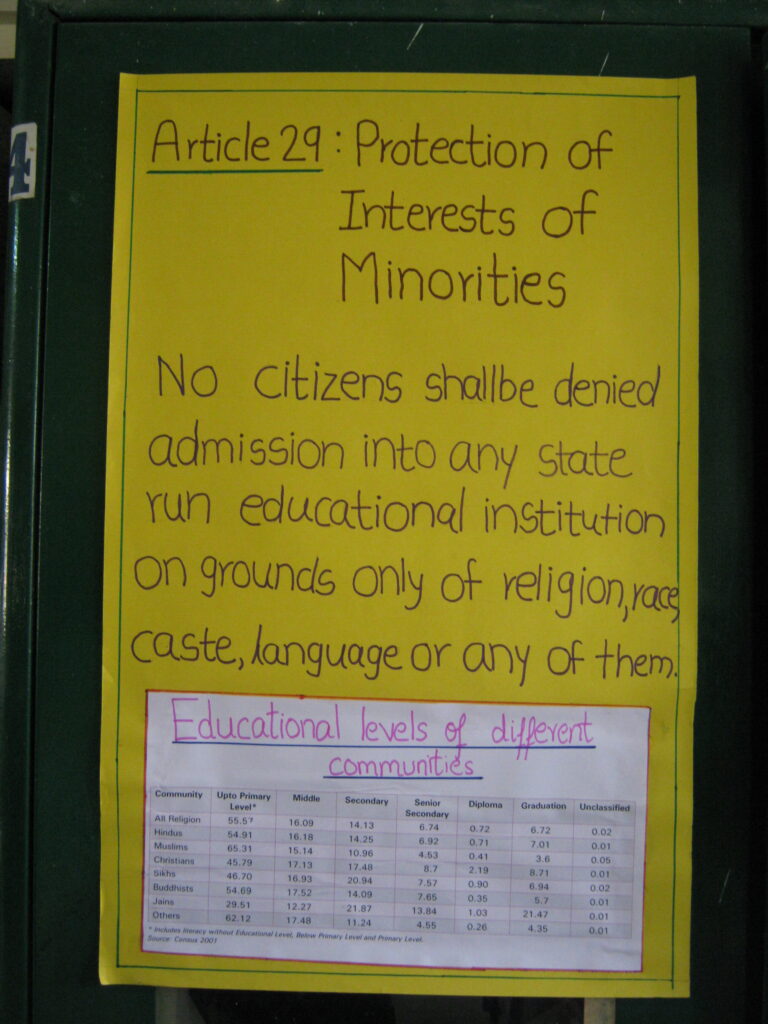 4
Article 29 : Protection of
Interests of
Minorities
No citizens shallbe denied
admission into any state
run educational institution
on grounds only of religion, race,
caste, language or any of them.
Educational levels of different
communities
Community Upto Primary Level* Middle Secondary Senior Secondary Diploma Graduation Unclassified
All Religion 55.57 16.09 14.13 6.74 0.72 6.72 0.02
Hindus 54.91 16.18 14.25 6.92 0.71 7.01 0.01
Muslims 65.31 15.14 10.96 4.53 0.41 3.6 0.05
Christians 45.79 17.13 17.48 8.7 2.19 8.71 0.01
Sikhs 46.70 16.93 20.94 7.57 0.90 6.94 0.02
Buddhists 54.69 17.52 14.09 7.65 0.35 5.7 0.01
Jains 29.51 12.27 21.87 13.84 1.03 21.47 0.01
Others 62.12 17.48 11.24 4.55 0.26 4.35 0.01
* Includes literacy without Educational Level, Below Primary Level and Primary Level.
Source: Census 2001